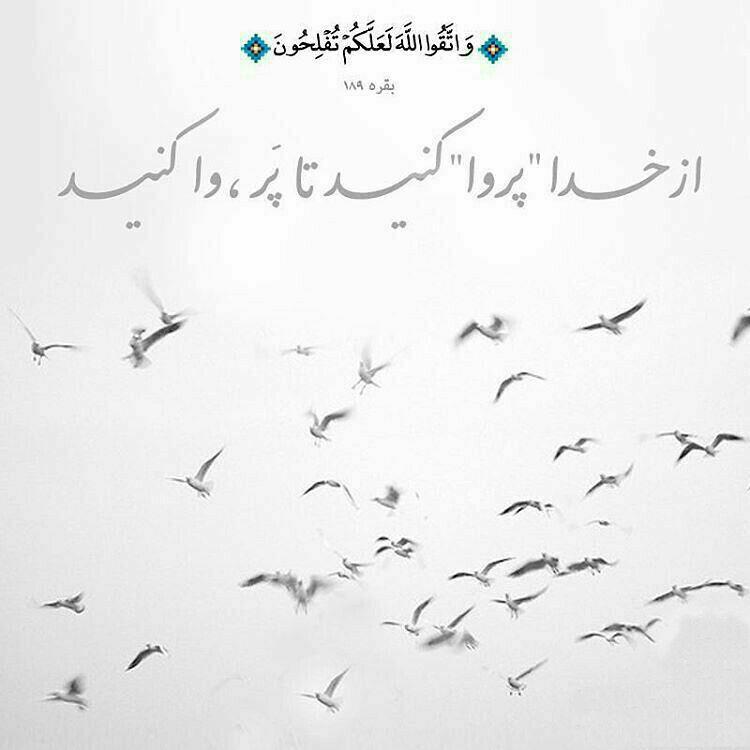 وَ اتَّقُوا اللَّهَ لَعَلَّكُمْ تُفْلِحُونَ
بقره ۱۸۹
از خدا "پروا" کنید تا پَر ، وا کنید